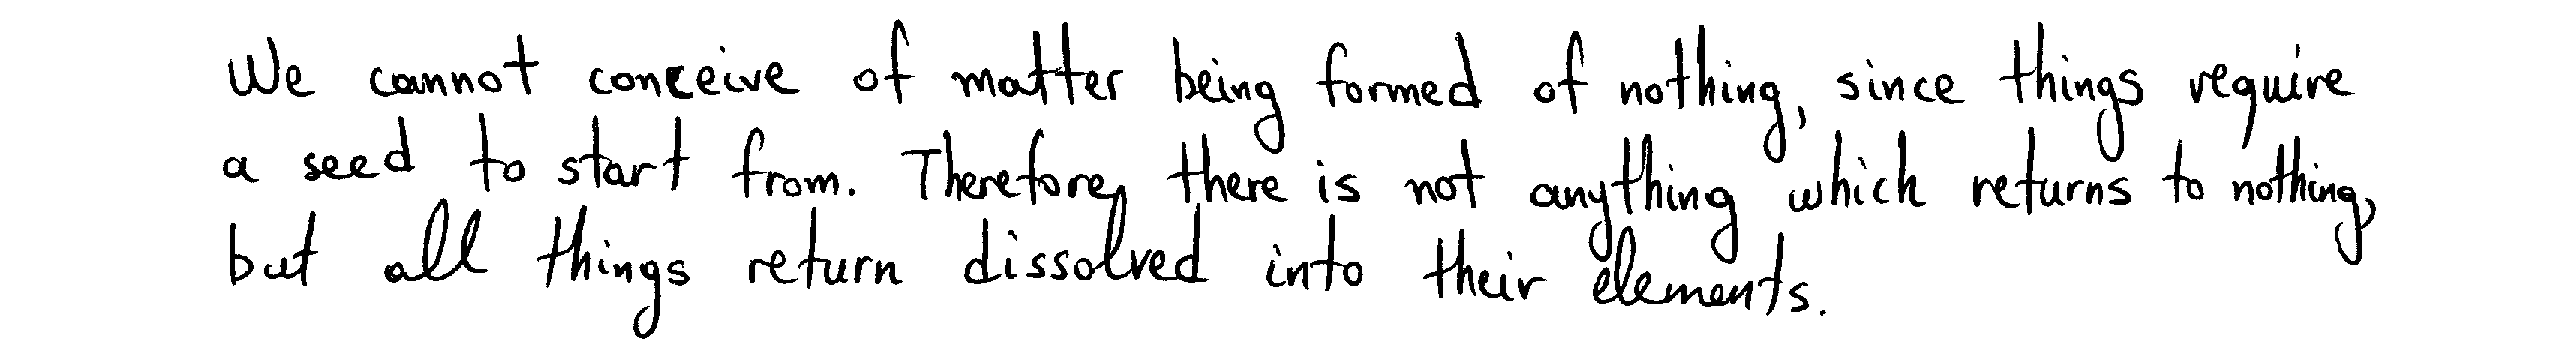 We cannot conceive of matter being formed of nothing, since things require
a seed to start from. Therefore, there is not anything which returns to nothing,
but all things return dissolved into their elements.